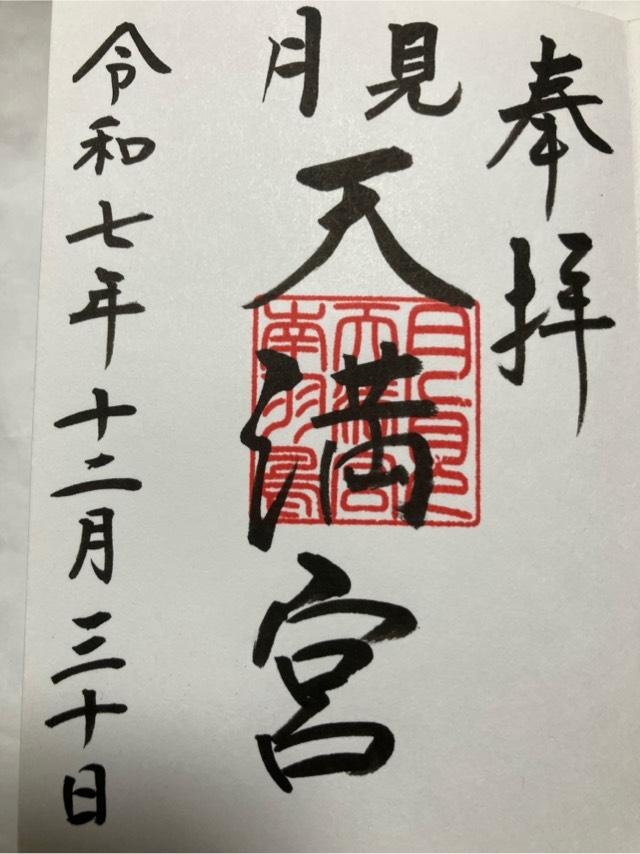 奉拝
月見
天満宮
令和七年十二月三十日
月見
天満宮
南羽鳥